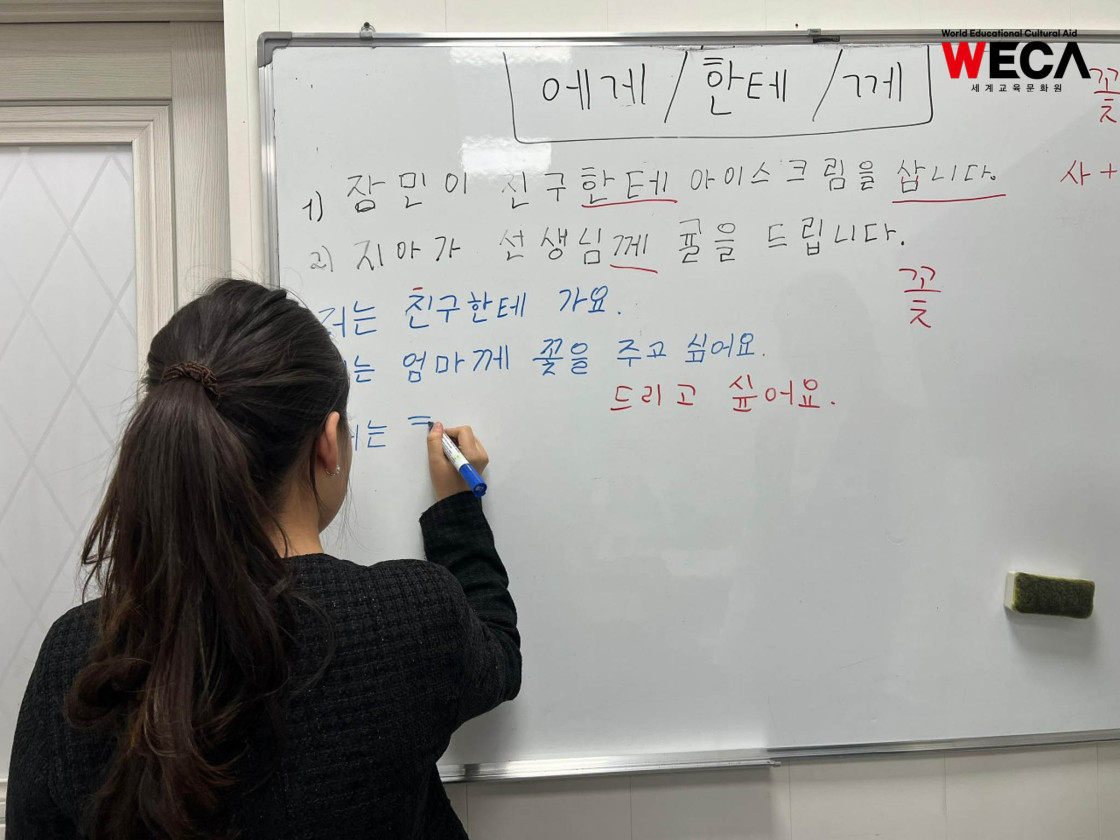 World Educational Cultural Aid
WECA
세계교육문화원
에게/한테/께
꽃
1) 장민이 친구한테 아이스크림을 삽니다.
사+
2) 지아가 선생님께 드립니다.
꽃
저는 친구한테 가요.
는 엄마께 꽃을 주고 싶어요.
드리고 싶어요.
는